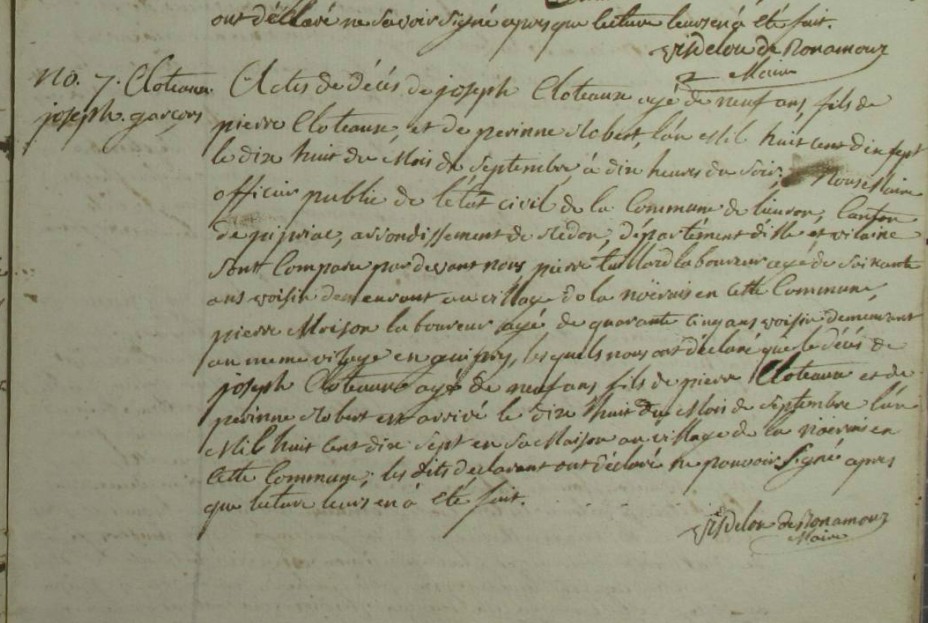 ont déclaré ne savoir signé apres que lecture leurs en à eté fait.
Visdelou de Bonamour
Maire
No. 7. Cloteaux
joseph. garçons
Actes de décés de joseph Cloteaux agé de neuf ans, fils de
pierre Cloteaux, et de perinne Robert, l'an Mil huit cent dix sept
le dix huit du Mois de Septembre à dix heures du Soir; Nous Maire
officier public de l'état civil de la Commune de lieuron, Canton
de pipriac, arrondissement de Redon, département d'ille et vilaine
Sont Comparu par devant nous pierre laboureur agé de Soixante
ans voisin demeurant au village de la noërais en Cette Commune,
pierre laboureur agé de quarante Cinq ans voisin demeurant
au meme village en guipry, les quels nous ont déclaré que le décés de
joseph Cloteaux agé de neuf ans fils de pierre Cloteaux et de
perinne Robert est arrivé le dix huit du Mois de Septembre l'an
Mil huit Cent dix Sept en Sa Maison au village de la noërais en
Cette Commune; les dits declarant ont déclaré ne pouvoir Signé apres
que lecture leurs en à eté fait.
Visdelou de Bonamour
Maire